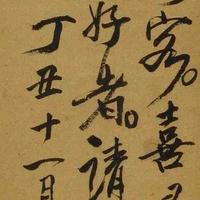 客。喜
好者。請
丁丑十一月